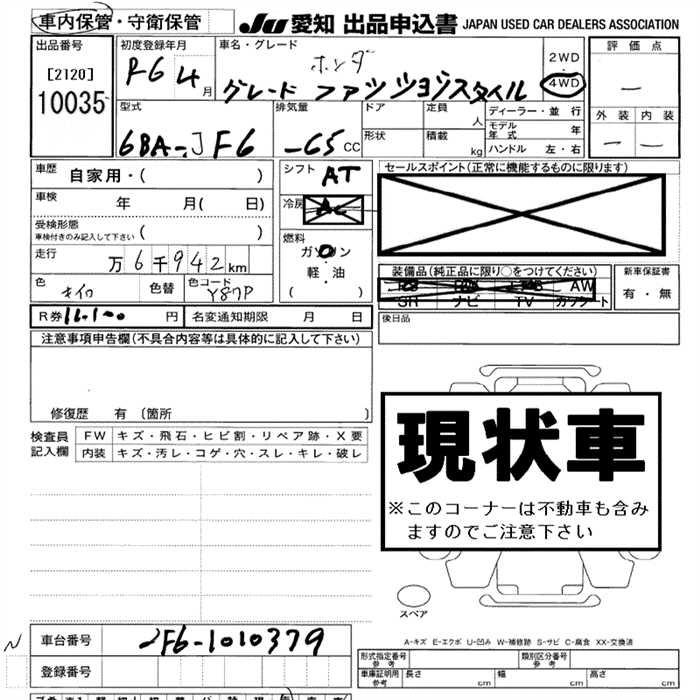 車内保管・守衛保管
JU 愛知 出品申込書 JAPAN USED CAR DEALERS ASSOCIATION
出品番号
[2120]
10035
初度登録年月
R6 4月
車名・グレード
ホンダ
グレード ファッションスタイル
2WD
・
4WD
評価点
—
外装 内装
— —
型式
6BA-JF6
排気量
-65cc
ドア
形状
定員 人
積載 kg
ディーラー・並行
モデル年式 年
ハンドル 左・右
車歴 自家用・( )
車検 年 月( 日)
受検形態
車検付きのみ記入して下さい ( )
走行 万6千942km
色 色替 色コード
Y87P
シフト AT
冷房 AC
燃料
ガソリン
・
軽・油
( )
セールスポイント(正常に機能するものに限ります)
装備品(純正品に限り○をつけてください)
AW
SR ナビ TV カセット
新車保証書
有・無
R券 円
名変通知期限 月 日
後日品
注意事項申告欄(不具合内容等は具体的に記入して下さい)
修復歴 有 (箇所 )
検査員記入欄
FW キズ・飛石・ヒビ割・リペア跡・X要
内装 キズ・汚レ・コゲ・穴・スレ・キレ・破レ
現状車
※このコーナーは不動車も含みますのでご注意下さい
スペア
A-キズ E-エクボ U-凹み W-補修跡 S-サビ C-腐食 XX-交換済
車台番号 JF6-1010379
登録番号
形式指定番号 参考
類別区分番号 参考
車庫証明用 参考 長さ cm 幅 cm 高さ cm